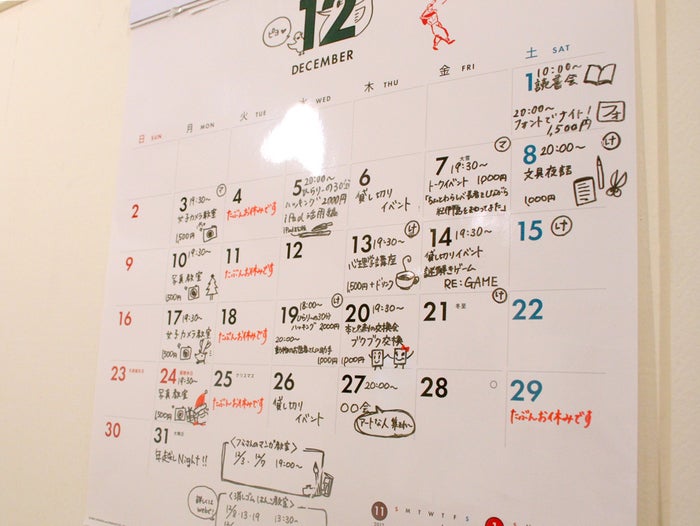 ピヨ
12
DECEMBER
日 SUN 月 MON 火 TUE 水 WED 木 THU 金 FRI 土 SAT
1 10:00〜
読書会
20:00〜
フォントでナイト!
1,500円
フォ
2
3 19:30〜
マ
女子カメラ教室
1,500円
4
たぶんお休みです
5 20:00〜
ひらりーの30分
ハッキング 2000円
iPad活用編
6
貸し切り
イベント
7 大雪 19:30〜
マ
トークイベント
1000円
8 20:00〜
け
文具夜話
1000円
9
10 19:30〜
写真教室
1500円
11
たぶんお休みです
12
13 19:30〜
け
心理学講座
1,500円+ドリンク
14 19:30〜
貸し切りイベント
謎解きゲーム
RE:GAME
15
け
16
17 19:30〜
女子カメラ教室
1500円
18
たぶんお休みです
19 18:00〜
け
ひらりーの30分
ハッキング 2000円
20:00〜
1000円
20 19:30〜
ブクブク交換
1000円
21 冬至
け
22
23 天皇誕生日
24 振替休日
19:30〜
写真教室
1500円
25 クリスマス
たぶんお休みです
26
貸し切り
イベント
27 20:00〜
○○会
アートな人 集まれ〜
28
29
たぶんお休みです
30
31 大晦日
年越しNight!!
12/3・12/17 19:00〜
詳しくは
webで
消しゴムはんこ教室
12/8・13・19 13:30〜
11
S M T W T F S